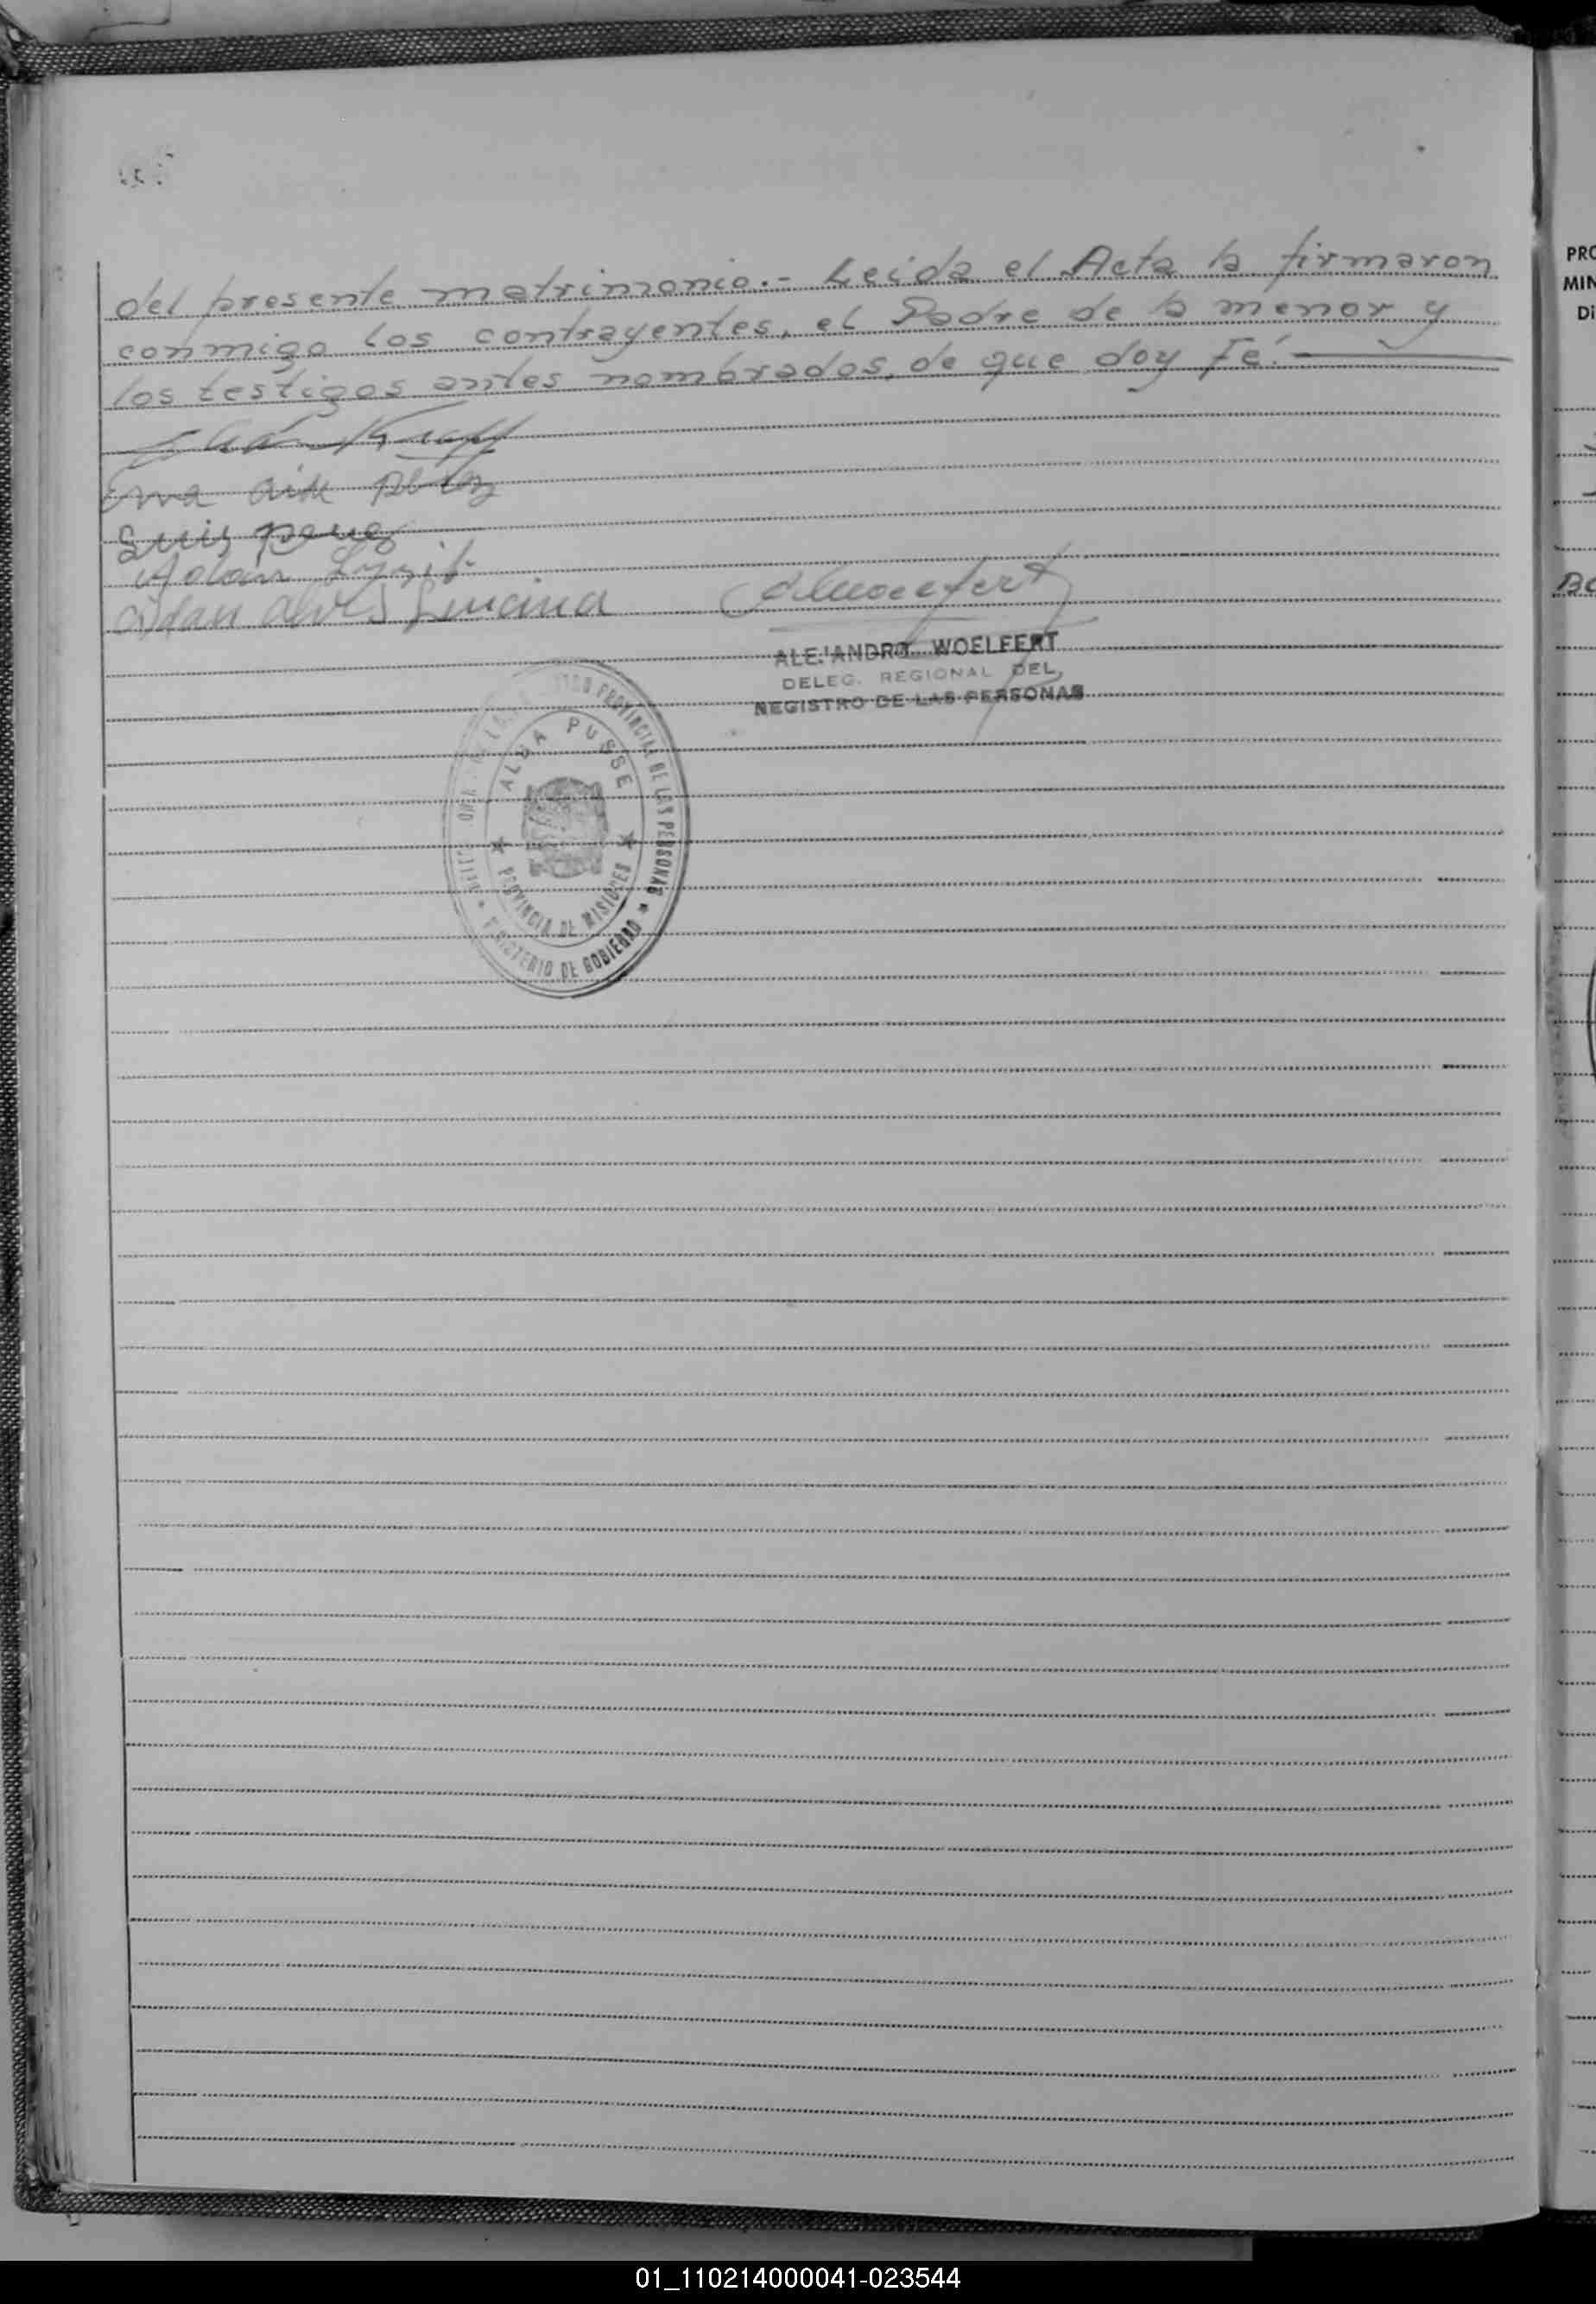 del presente matrimonio.- Leida el Acta la firmaron
conmigo los contrayentes, el Padre de la menor y
los testigos antes nombrados, de que doy Fé.-
Luis
Adán
ALEJANDRO WOELFERT
DELEG. REGIONAL DEL
REGISTRO DE LAS PERSONAS
PROVINCIAL DE LAS PERSONAS
ALBA PUSSE
PROVINCIA DE MISIONES
MINISTERIO DE GOBIERNO
PRO
MIN
Di
01_110214000041-023544